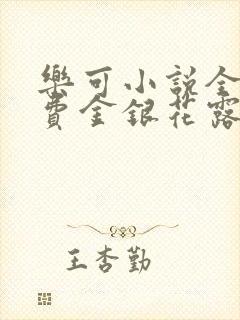 樂可小説全
費金銀花露
王杏勤